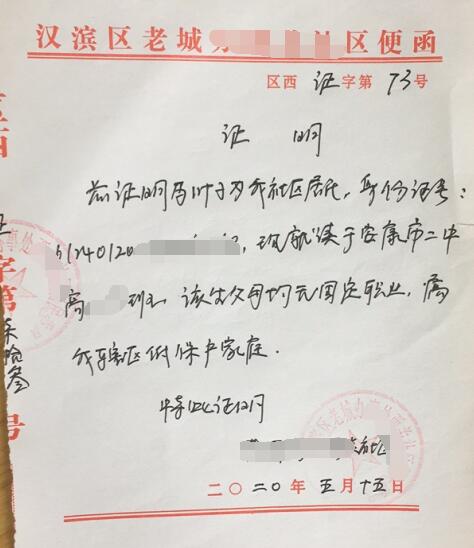 汉滨区老城 区便函
区西 证 字第 73 号
证 明
兹证明 为我社区居民，身份证号：
6124012 ，现就读于安康市二中
高 班，该生父母均无固定职业，属
我辖区低保户家庭．
特此证明
二〇二〇年五月十五日
字第
柒拾叁
号